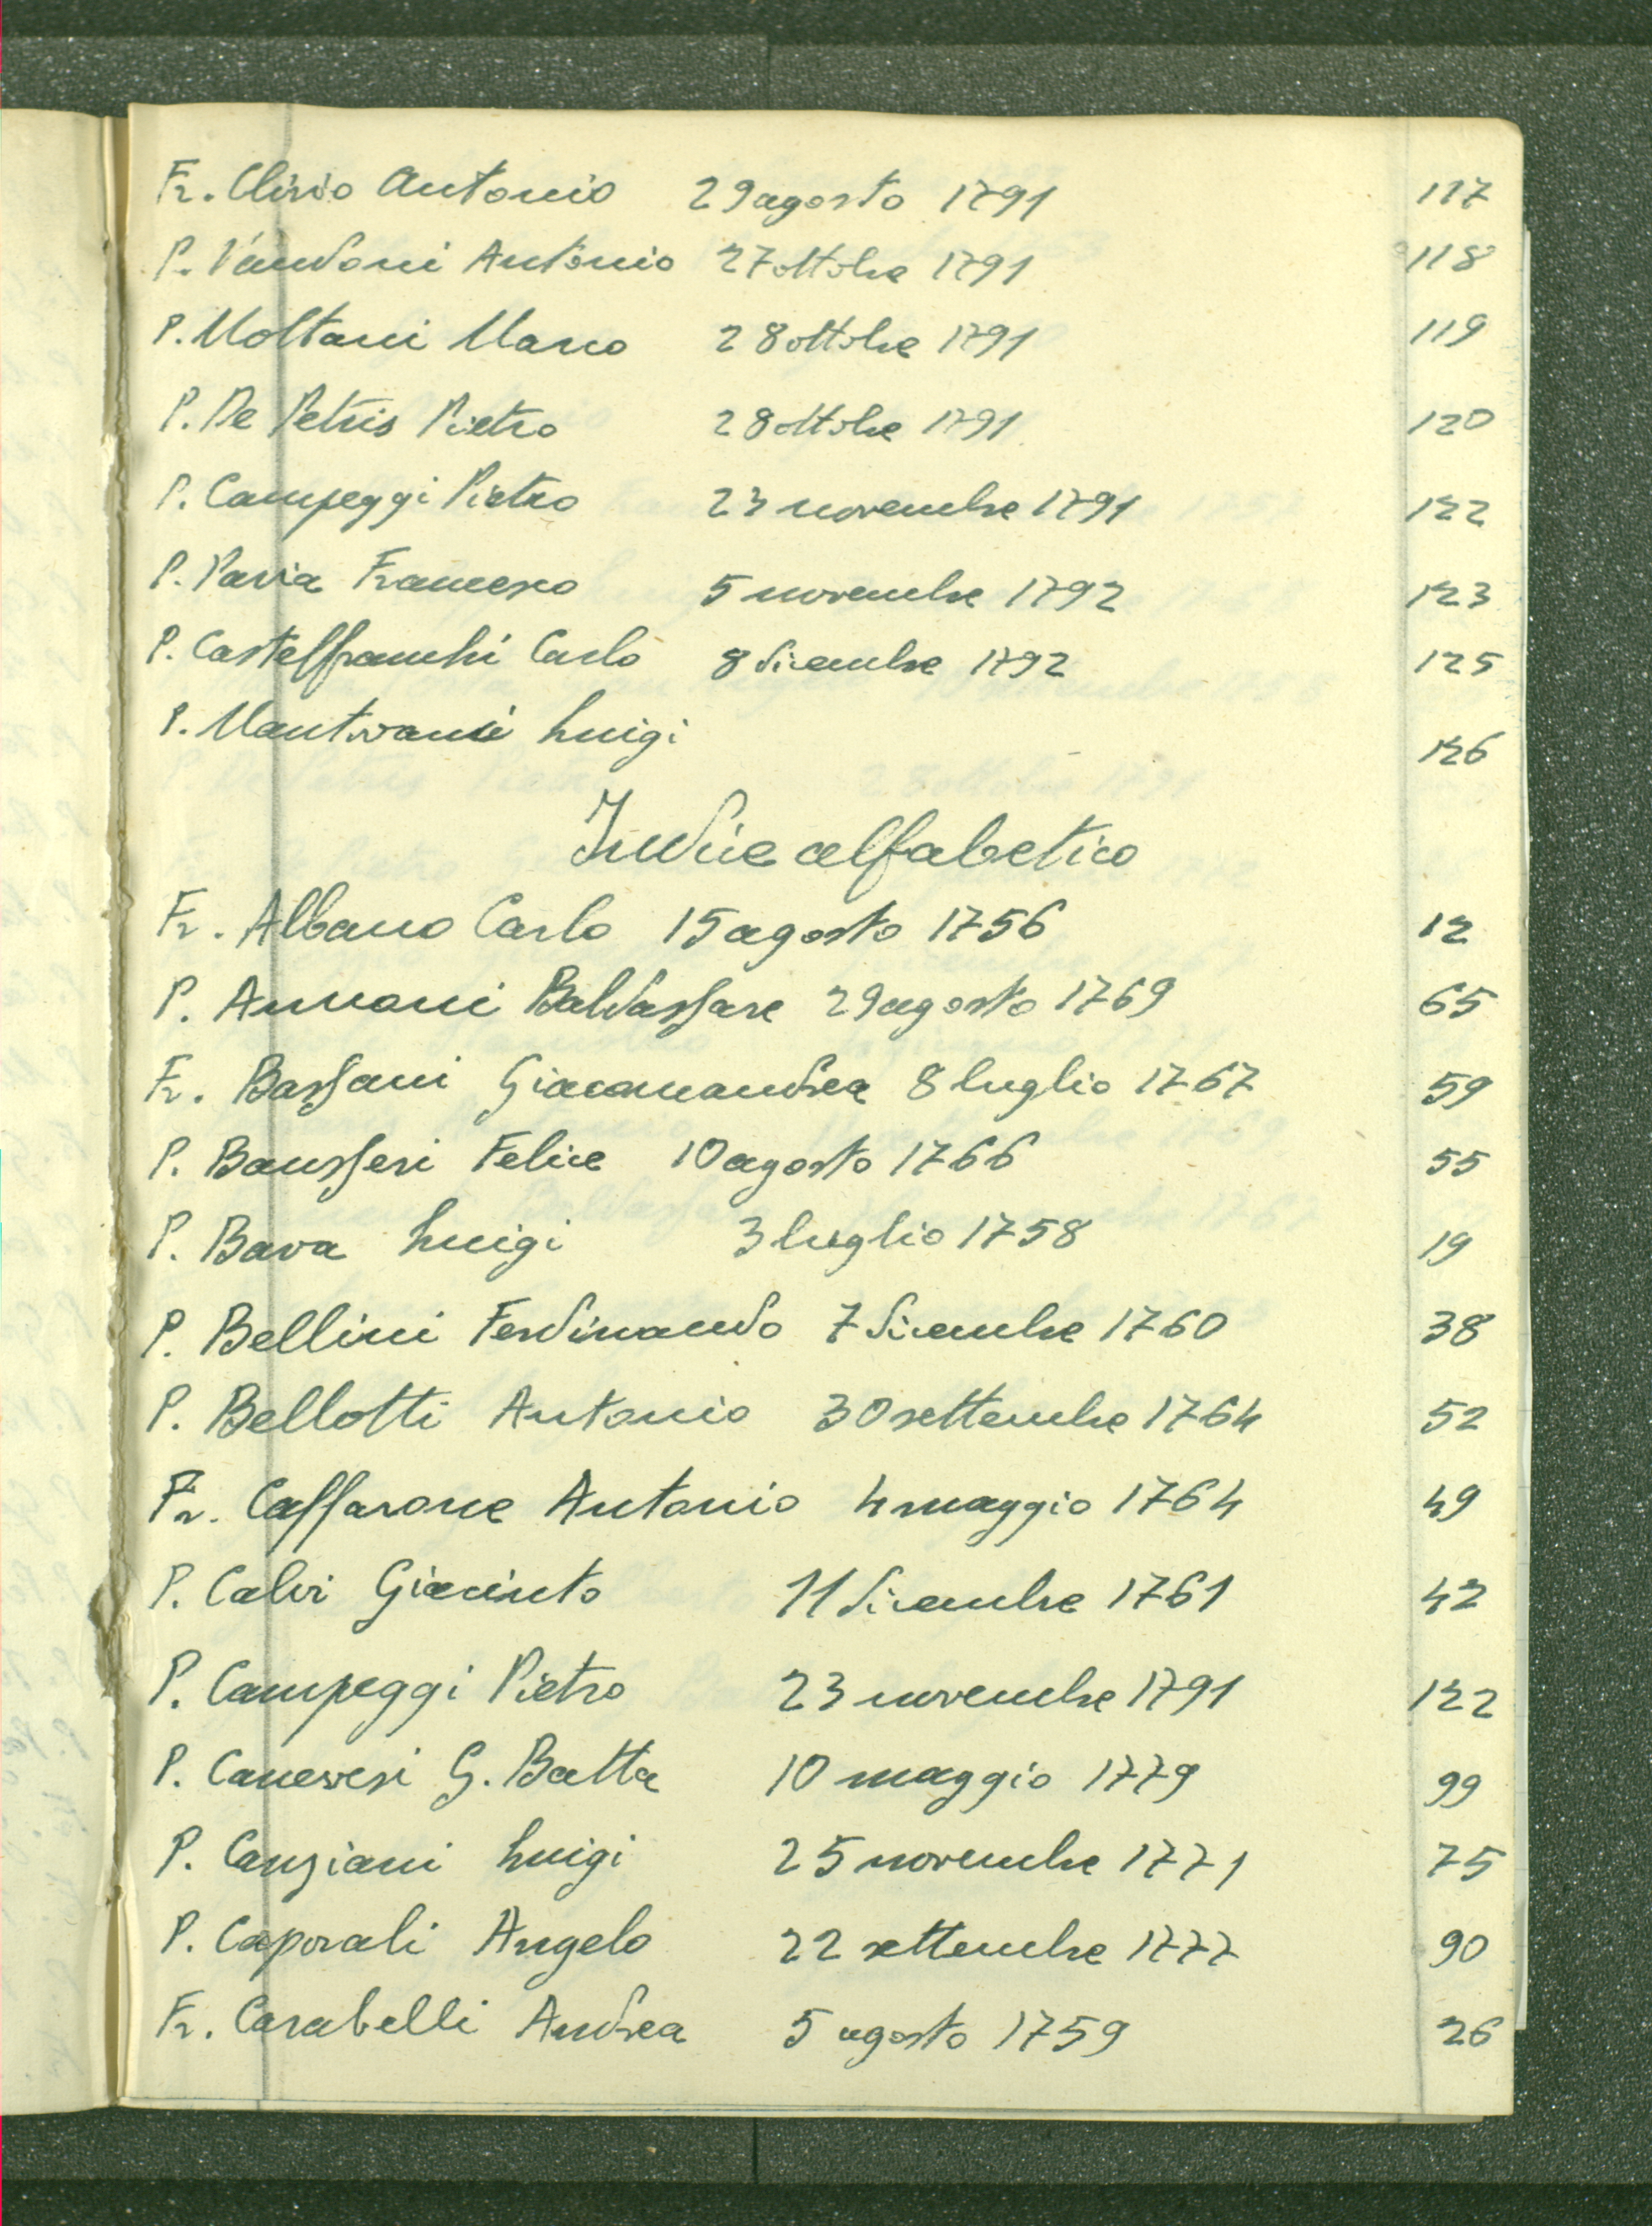 Fr. Clivio Antonio 29 agosto 1791 117
P. Vandoni Antonio 27 ottobre 1791 118
P. Moltani Marco 28 ottobre 1791 119
P. De Petris Pietro 28 ottobre 1791 120
P. Campeggi Pietro 23 novembre 1791 122
P. Pavia Francesco 5 novembre 1792 123
P. Castelfranchi Carlo 8 dicembre 1792 125
P. Mantovani Luigi 126
Indice alfabetico
Fr. Albano Carlo 15 agosto 1756 12
P. Annoni Baldassare 29 agosto 1769 65
Fr. Bassani Giacomandrea 8 luglio 1767 59
P. Bausseri Felice 10 agosto 1766 55
P. Bava Luigi 3 luglio 1758 19
P. Bellini Ferdinando 7 dicembre 1760 38
P. Bellotti Antonio 30 settembre 1764 52
Fr. Caffarone Antonio 4 maggio 1764 49
P. Calvi Giacinto 11 dicembre 1761 42
P. Campeggi Pietro 23 novembre 1791 122
P. Canevesi G. Batta 10 maggio 1779 99
P. Canziani Luigi 25 novembre 1771 75
P. Caporali Angelo 22 settembre 1777 90
Fr. Carabelli Andrea 5 agosto 1759 26